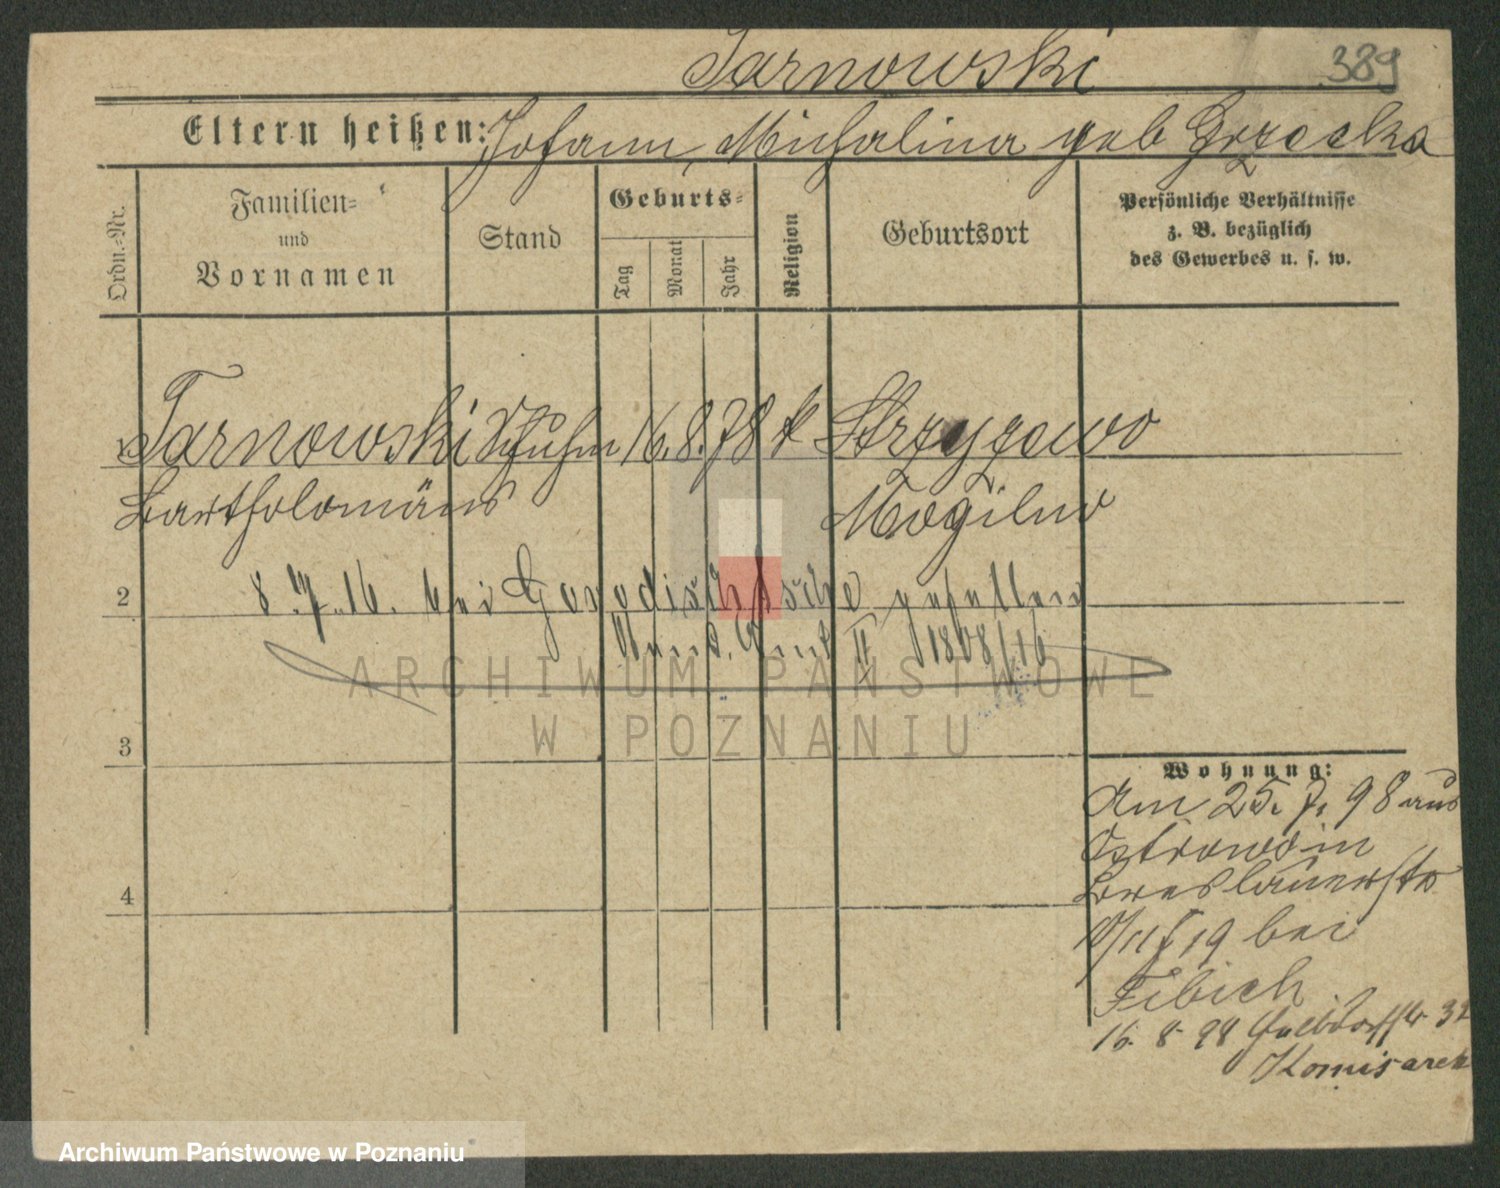 Tarnowski 389
Eltern heißen: Johann, Michalina geb Grzecka
Ordn.-Nr.
Familien-
und
Vornamen
Stand
Geburts-
Tag
Monat
Jahr
Religion
Geburtsort
Persönliche Verhältnisse
z. B. bezüglich
des Gewerbes u. s. w.
Tarnowski Schuhm 16. 8. 78 k Strzyzewo
Bartholomäus Mogilno
2 8. 7. 16. bei Gorodischtsche gefallen
Stand. Amt II 1808/16
ARCHIWUM PAŃSTWOWE
W POZNANIU
3
Wohnung:
Am 25. 7. 98 aus
Ostrowo in
Breslauerstr
19 bei
4
Fibich
16. 8. 98 32
Komisarek
Archiwum Państwowe w Poznaniu